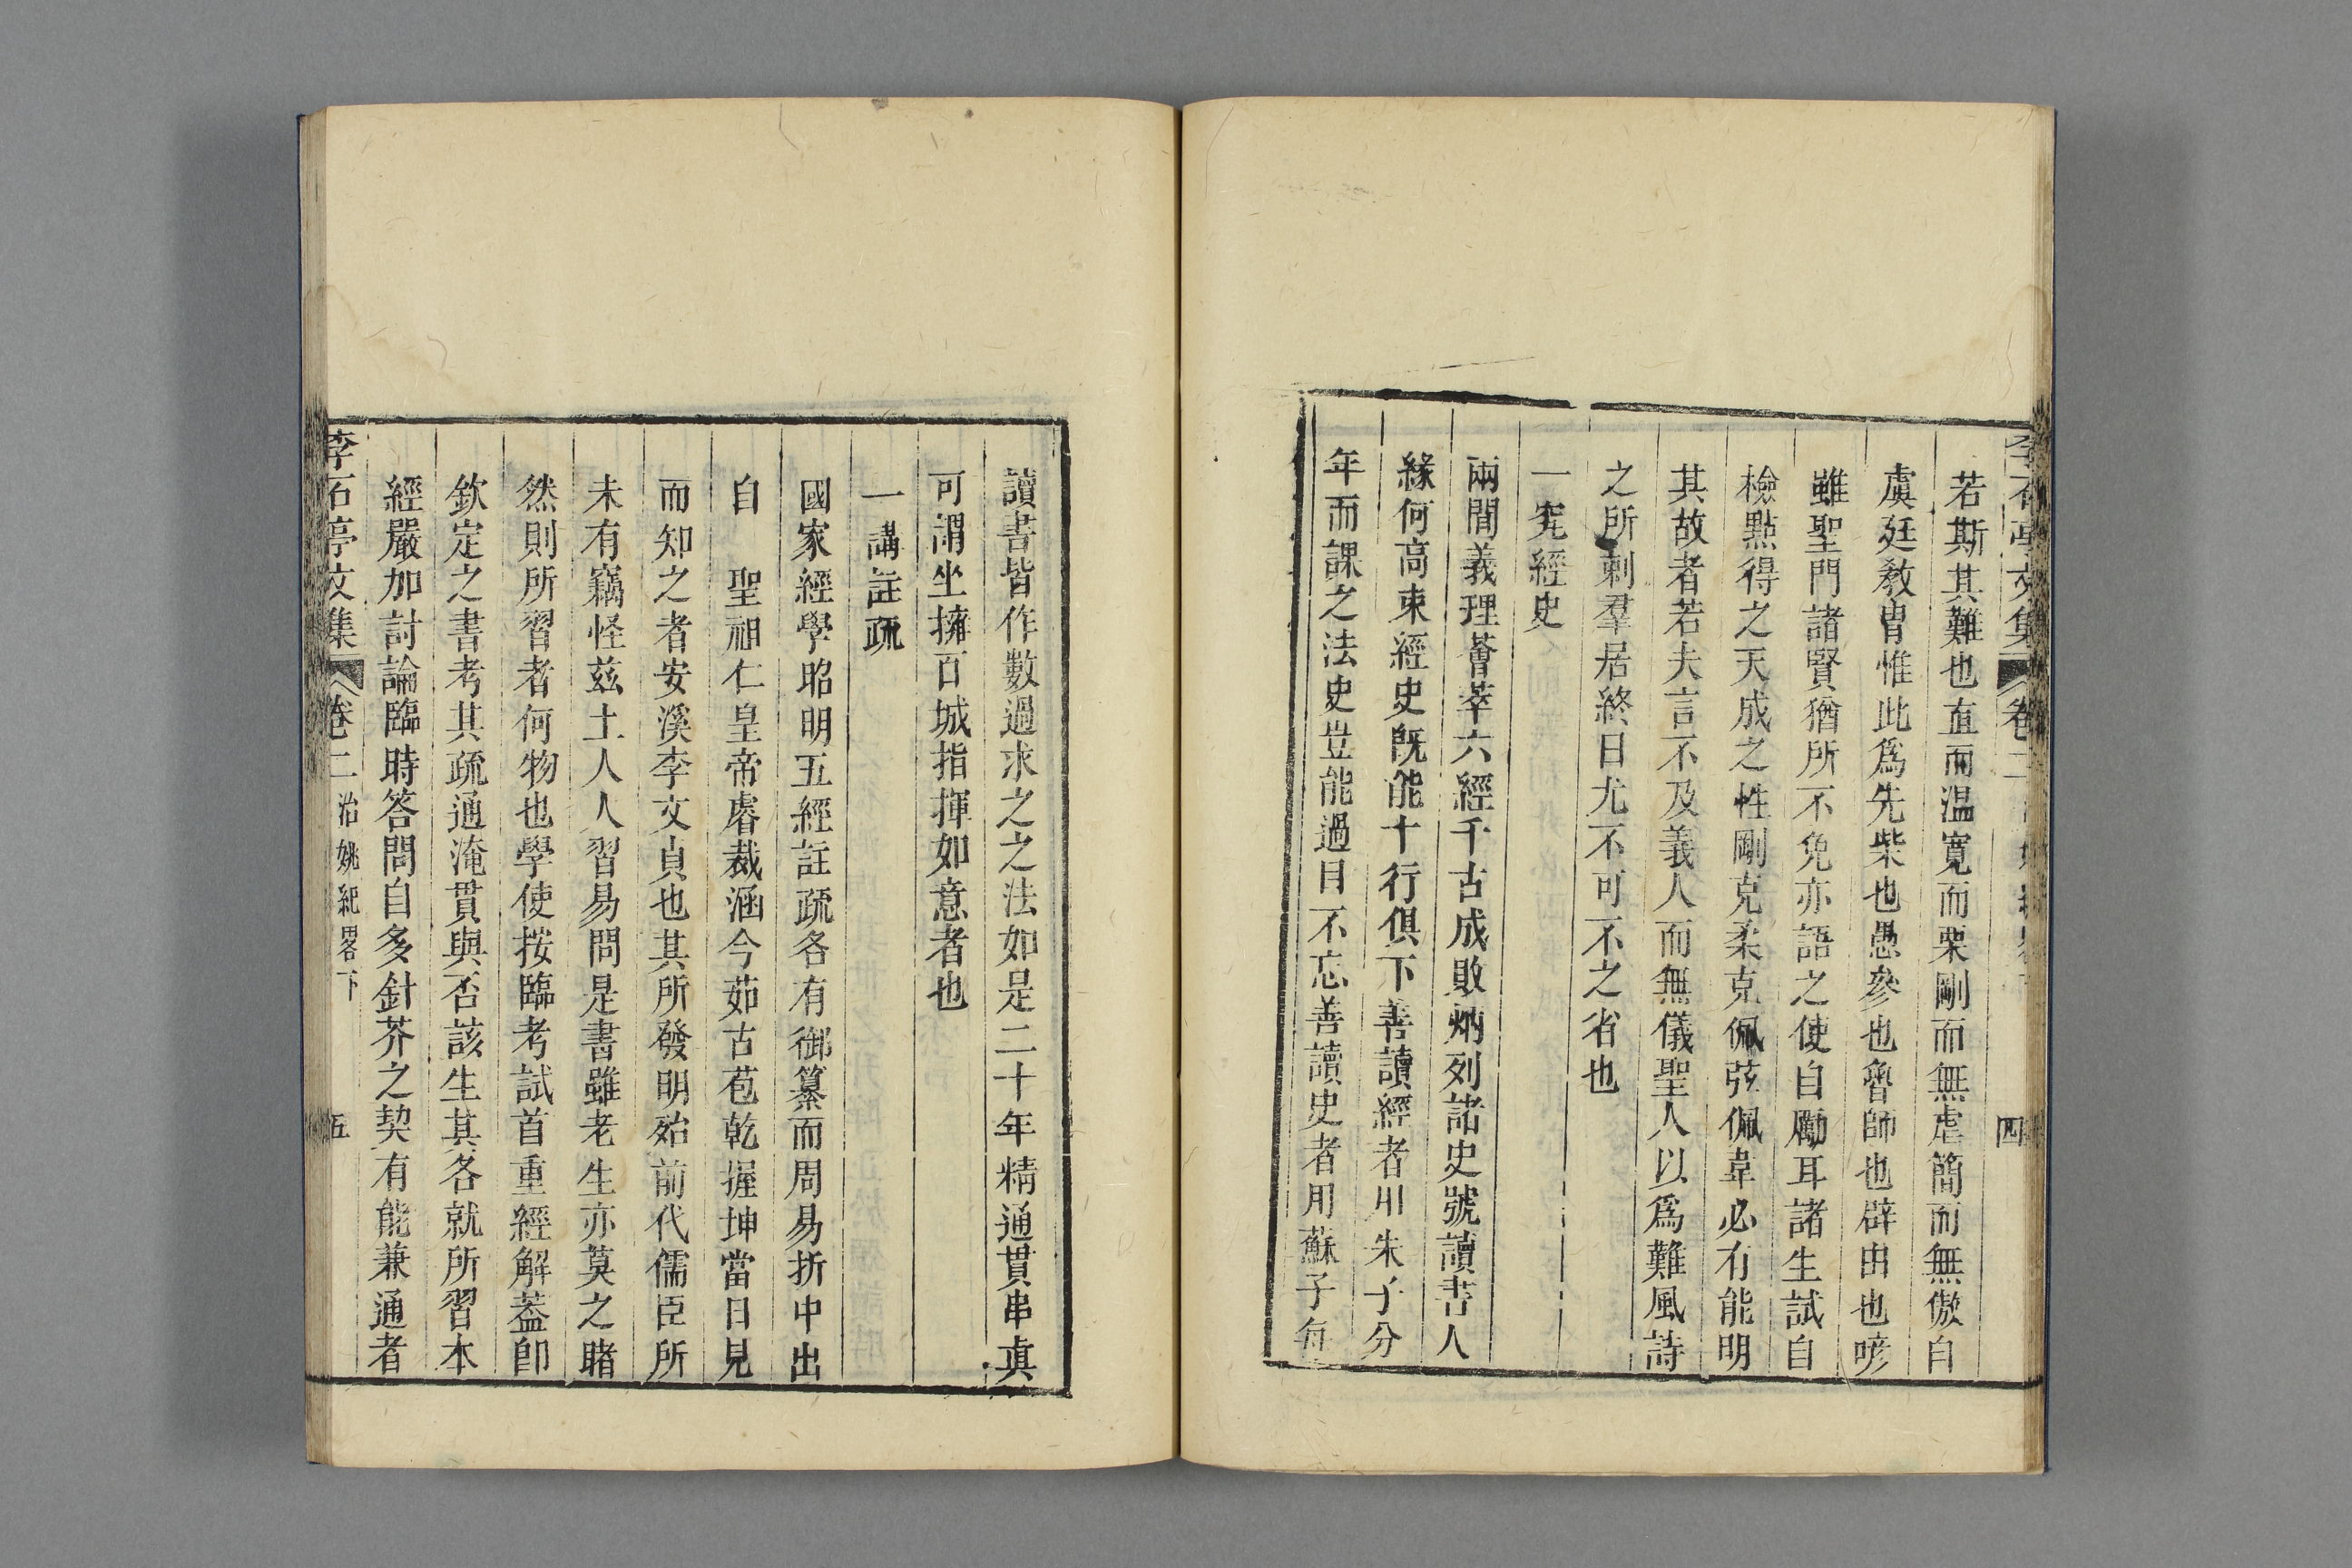 若斯其難也直而温寛而栗剛而無虐簡而無傲自
虞廷敎胄惟此爲先柴也愚參也魯師也辟由也喭
雖聖門諸賢猶所不免亦語之使自勵耳諸生試自
檢點得之天成之性剛克柔克佩弦佩韋必有能明
其故者若夫言不及義人而無儀聖人以爲難風詩
之所刺羣居終日尤不可不之省也
一究經史
兩間義理薈萃六經千古成敗炳列諸史號讀書人
緣何高束經史旣能十行俱下善讀經者用朱子分
年而課之法史豈能過目不忘善讀史者用蘇子每
讀書皆作數過求之之法如是二十年精通貫串眞
可謂坐擁百城指揮如意者也
一講註疏
國家經學昭明五經註疏各有御纂而周易折中出
自　聖祖仁皇帝睿裁涵今茹古苞乾握坤當日見
而知之者安溪李文貞也其所發明殆前代儒臣所
未有竊怪茲土人人習易問是書雖老生亦莫之睹
然則所習者何物也學使按臨考試首重經解葢卽
欽定之書考其疏通淹貫與否該生其各就所習本
經嚴加討論臨時答問自多針芥之契有能兼通者
李石亭文集 卷二 治姚紀畧下 五